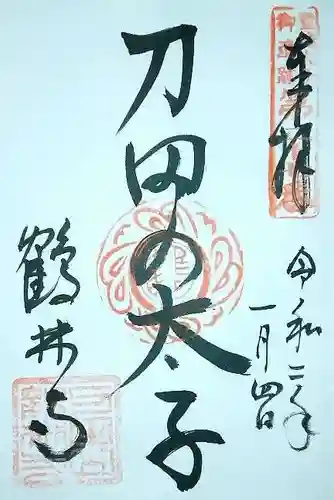 奉拝
令和二年
一月四日
刀田の太子
鶴林寺